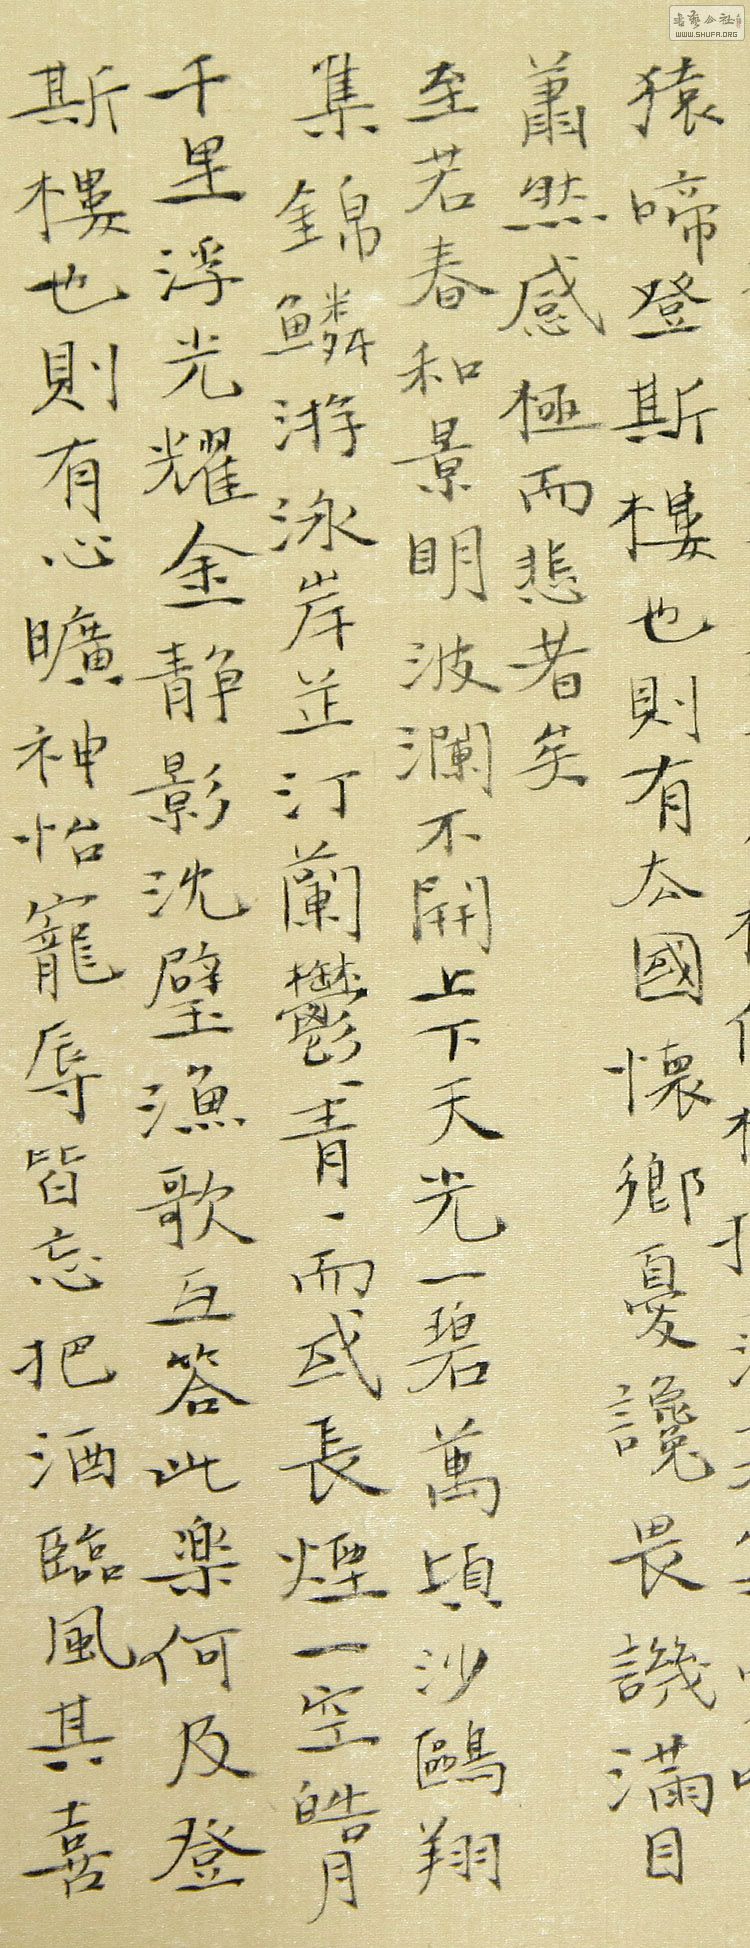 猿啼登斯樓也則有去國懷鄉憂讒畏譏滿目
蕭然感極而悲者矣
至若春和景明波瀾不開上下天光一碧萬頃沙鷗翔
集錦鱗游泳岸芷汀蘭鬱青而或長煙一空皓月
千里浮光耀金静影沈璧漁歌互答此楽何及登
斯樓也則有心曠神怡寵辱皆忘把酒臨風其喜
WWW.SHUFA.ORG